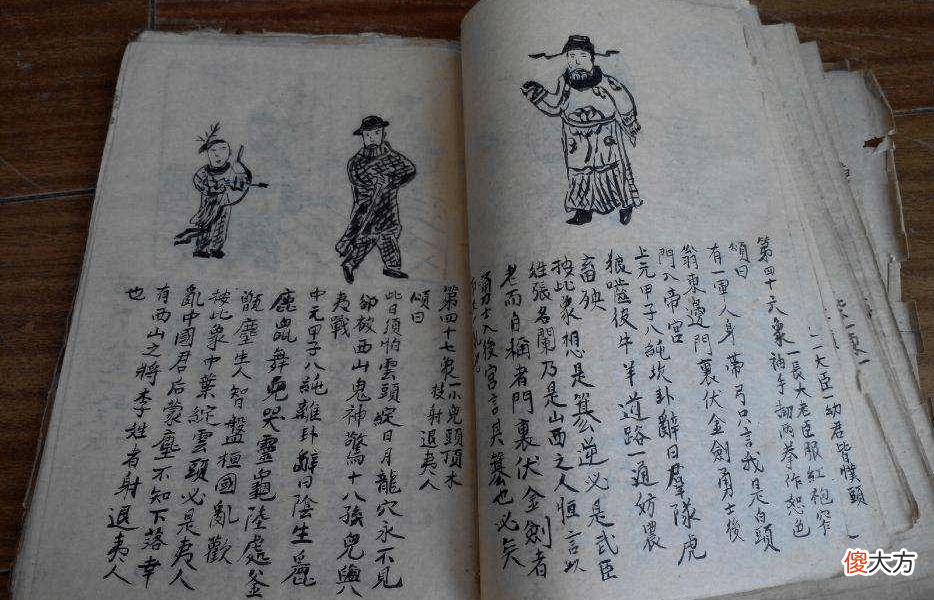 一二大臣一幼君皆幞頭
一長大老臣服紅袍窄
第四十六象 袖手 两拳作怒色
頌曰
有一軍人身帶弓只言我是白頭
翁東邊門裏伏金劍勇士後
門入帝宮
上元甲子八純坎卦辭曰羣隊虎
狼噬彼牛羊道路一通妨農
畜殃
按此象想是篡逆必是武臣
姓張名闌乃是山西之人恒言以
老而自稱者門裏伏金劍者
勇士入後宮言其篡也必矣
第四十七象 一小兒頭頂木
枝射退夷人
頌曰
此日須怕雲頭綻日月龍穴永不見
卻教西山鬼神驚十八孩兒與八
夷戰
中元甲子八純離卦辭曰陰生
鹿鼠舞鬼哭靈龜陸處釜
甑塵生人智盤桓國亂歡
按此象中葉綻雲頭必是夷人
亂中國君后蒙塵不知下落幸
有西山之將李姓者射退夷人
也
傻大方